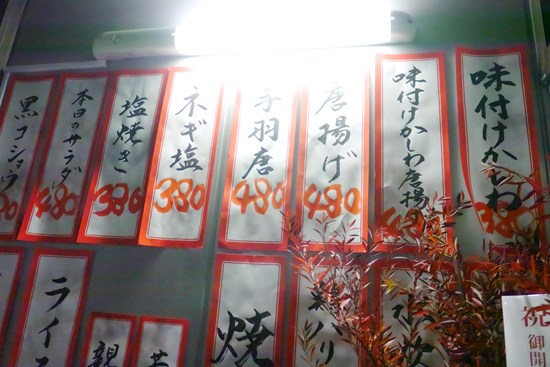 味付けかしわ
380
味付けかしわ唐揚
480
唐揚げ
480
手羽唐
480
ネギ塩
380
塩焼き
380
本日のサラダ
480
黒コショウ
ライス
焼
親
祝
御開